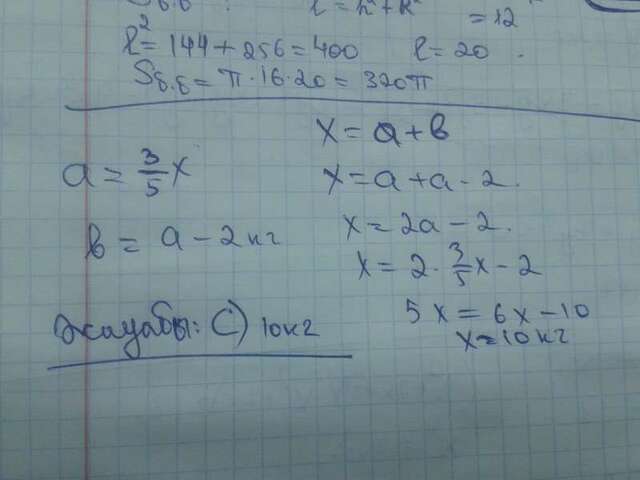 S б.б l = h² + R²
= 12
l² = 144 + 256 = 400 l = 20 .
Sб.б = π · 16 · 20 = 320π
x = a + b
a = 3/5 x
x = a + a - 2.
b = a - 2 кг
x = 2a - 2.
x = 2 · 3/5 x - 2
5x = 6x - 10
x = 10 кг
Жауабы: C) 10 кг